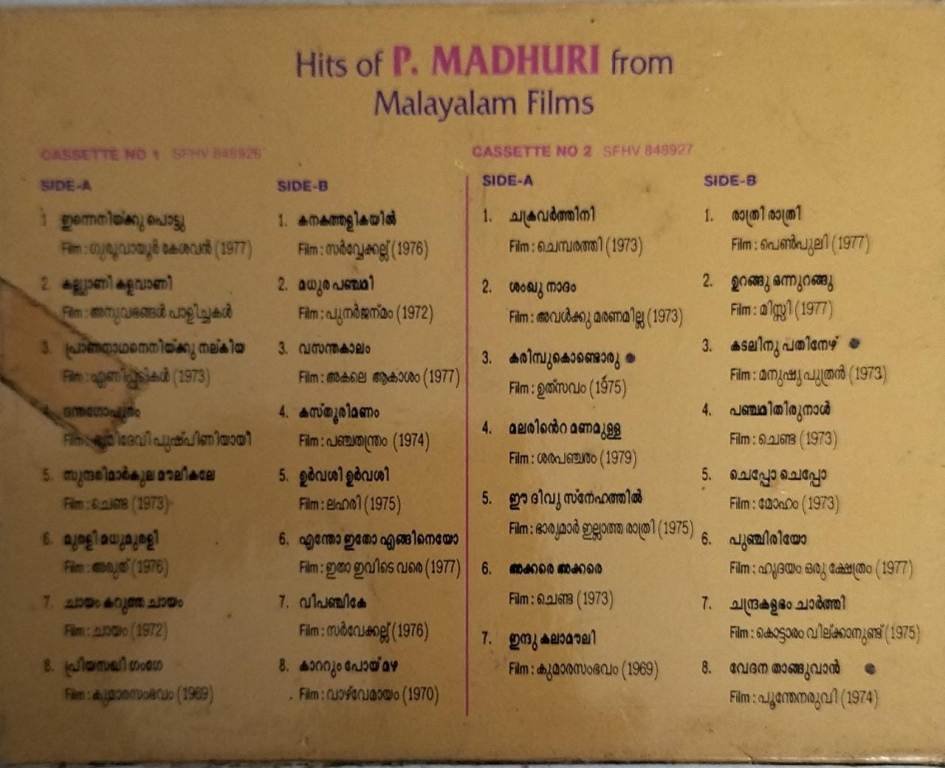 Hits of P. MADHURI from
Malayalam Films
CASSETTE NO 1 SFHV 848926
SIDE-A
1 ഇന്നെനിയ്ക്കു പൊട്ടു
Film : ഗുരുവായൂർ കേശവൻ (1977)
2. കല്ല്യാണി കളവാണി
Film : അനുഭവങ്ങൾ പാളിച്ചകൾ
3. പ്രാണനാഥനെനിയ്ക്കു നല്കിയ
Film : ഏണിപ്പടികൾ (1973)
4. ദന്തഗോപുരം
Film : ഭൂമിദേവി പുഷ്പിണിയായി
5. സുന്ദരിമാർകുല മൗലികലേ
Film : ചെണ്ട (1973)
6. മുരളി മധുമുരളി
Film : (1976)
7. ചായം കറുത്ത ചായം
Film : ചായം (1972)
8. പ്രിയസഖി ഗംഗേ
Film : കുമാരസംഭവം (1969)
SIDE-B
1. കനകത്തളികയിൽ
Film : സർവ്വേക്കല്ല് (1976)
2. മധുര പഞ്ചമി
Film : പുനർജന്മം (1972)
3. വസന്തകാലം
Film : അകലെ ആകാശം (1977)
4. കസ്തൂരിമണം
Film : പഞ്ചതന്ത്രം (1974)
5. ഉർവശി ഉർവശി
Film : ലഹരി (1975)
6. എന്തോ ഏതോ എങ്ങിനെയോ
Film : ഇതാ ഇവിടെ വരെ (1977)
7. വിപഞ്ചികേ
Film : സർവേക്കല്ല് (1976)
8. കാററും പോയ് മഴ
Film : വാഴ്‌വേമായം (1970)
CASSETTE NO 2 SFHV 848927
SIDE-A
1. ചക്രവർത്തിനി
Film : ചെമ്പരത്തി (1973)
2. ശംഖു നാദം
Film : അവൾക്കു മരണമില്ല (1973)
3. കരിമ്പുകൊണ്ടൊരു
Film : ഉത്സവം (1975)
4. മലരിൻെറ മണമുള്ള
Film : ശരപഞ്ചരം (1979)
5. ഈ ദിവ്യ സ്നേഹത്തിൽ
Film : ഭാര്യമാർ ഇല്ലാത്ത രാത്രി (1975)
6. അക്കരെ അക്കരെ
Film : ചെണ്ട (1973)
7. ഇന്ദു കലാമൗലി
Film : കുമാരസംഭവം (1969)
SIDE-B
1. രാത്രി രാത്രി
Film : പെൺപുലി (1977)
2. ഉറങ്ങു ഒന്നുറങ്ങു
Film : മിസ്സി (1977)
3. കടലിനു പതിനേഴ്
Film : മനുഷ്യപുത്രൻ (1973)
4. പഞ്ചമിതിരുനാൾ
Film : ചെണ്ട (1973)
5. ചെപ്പോ ചെപ്പോ
Film : മോഹം (1973)
6. പുഞ്ചിരിയോ
Film : ഹൃദയം ഒരു ക്ഷേത്രം (1977)
7. ചന്ദ്രകളഭം ചാർത്തി
Film : കൊട്ടാരം വില്ക്കാനുണ്ട് (1975)
8. വേദന താങ്ങുവാൻ
Film : പൂന്തേനരുവി (1974)